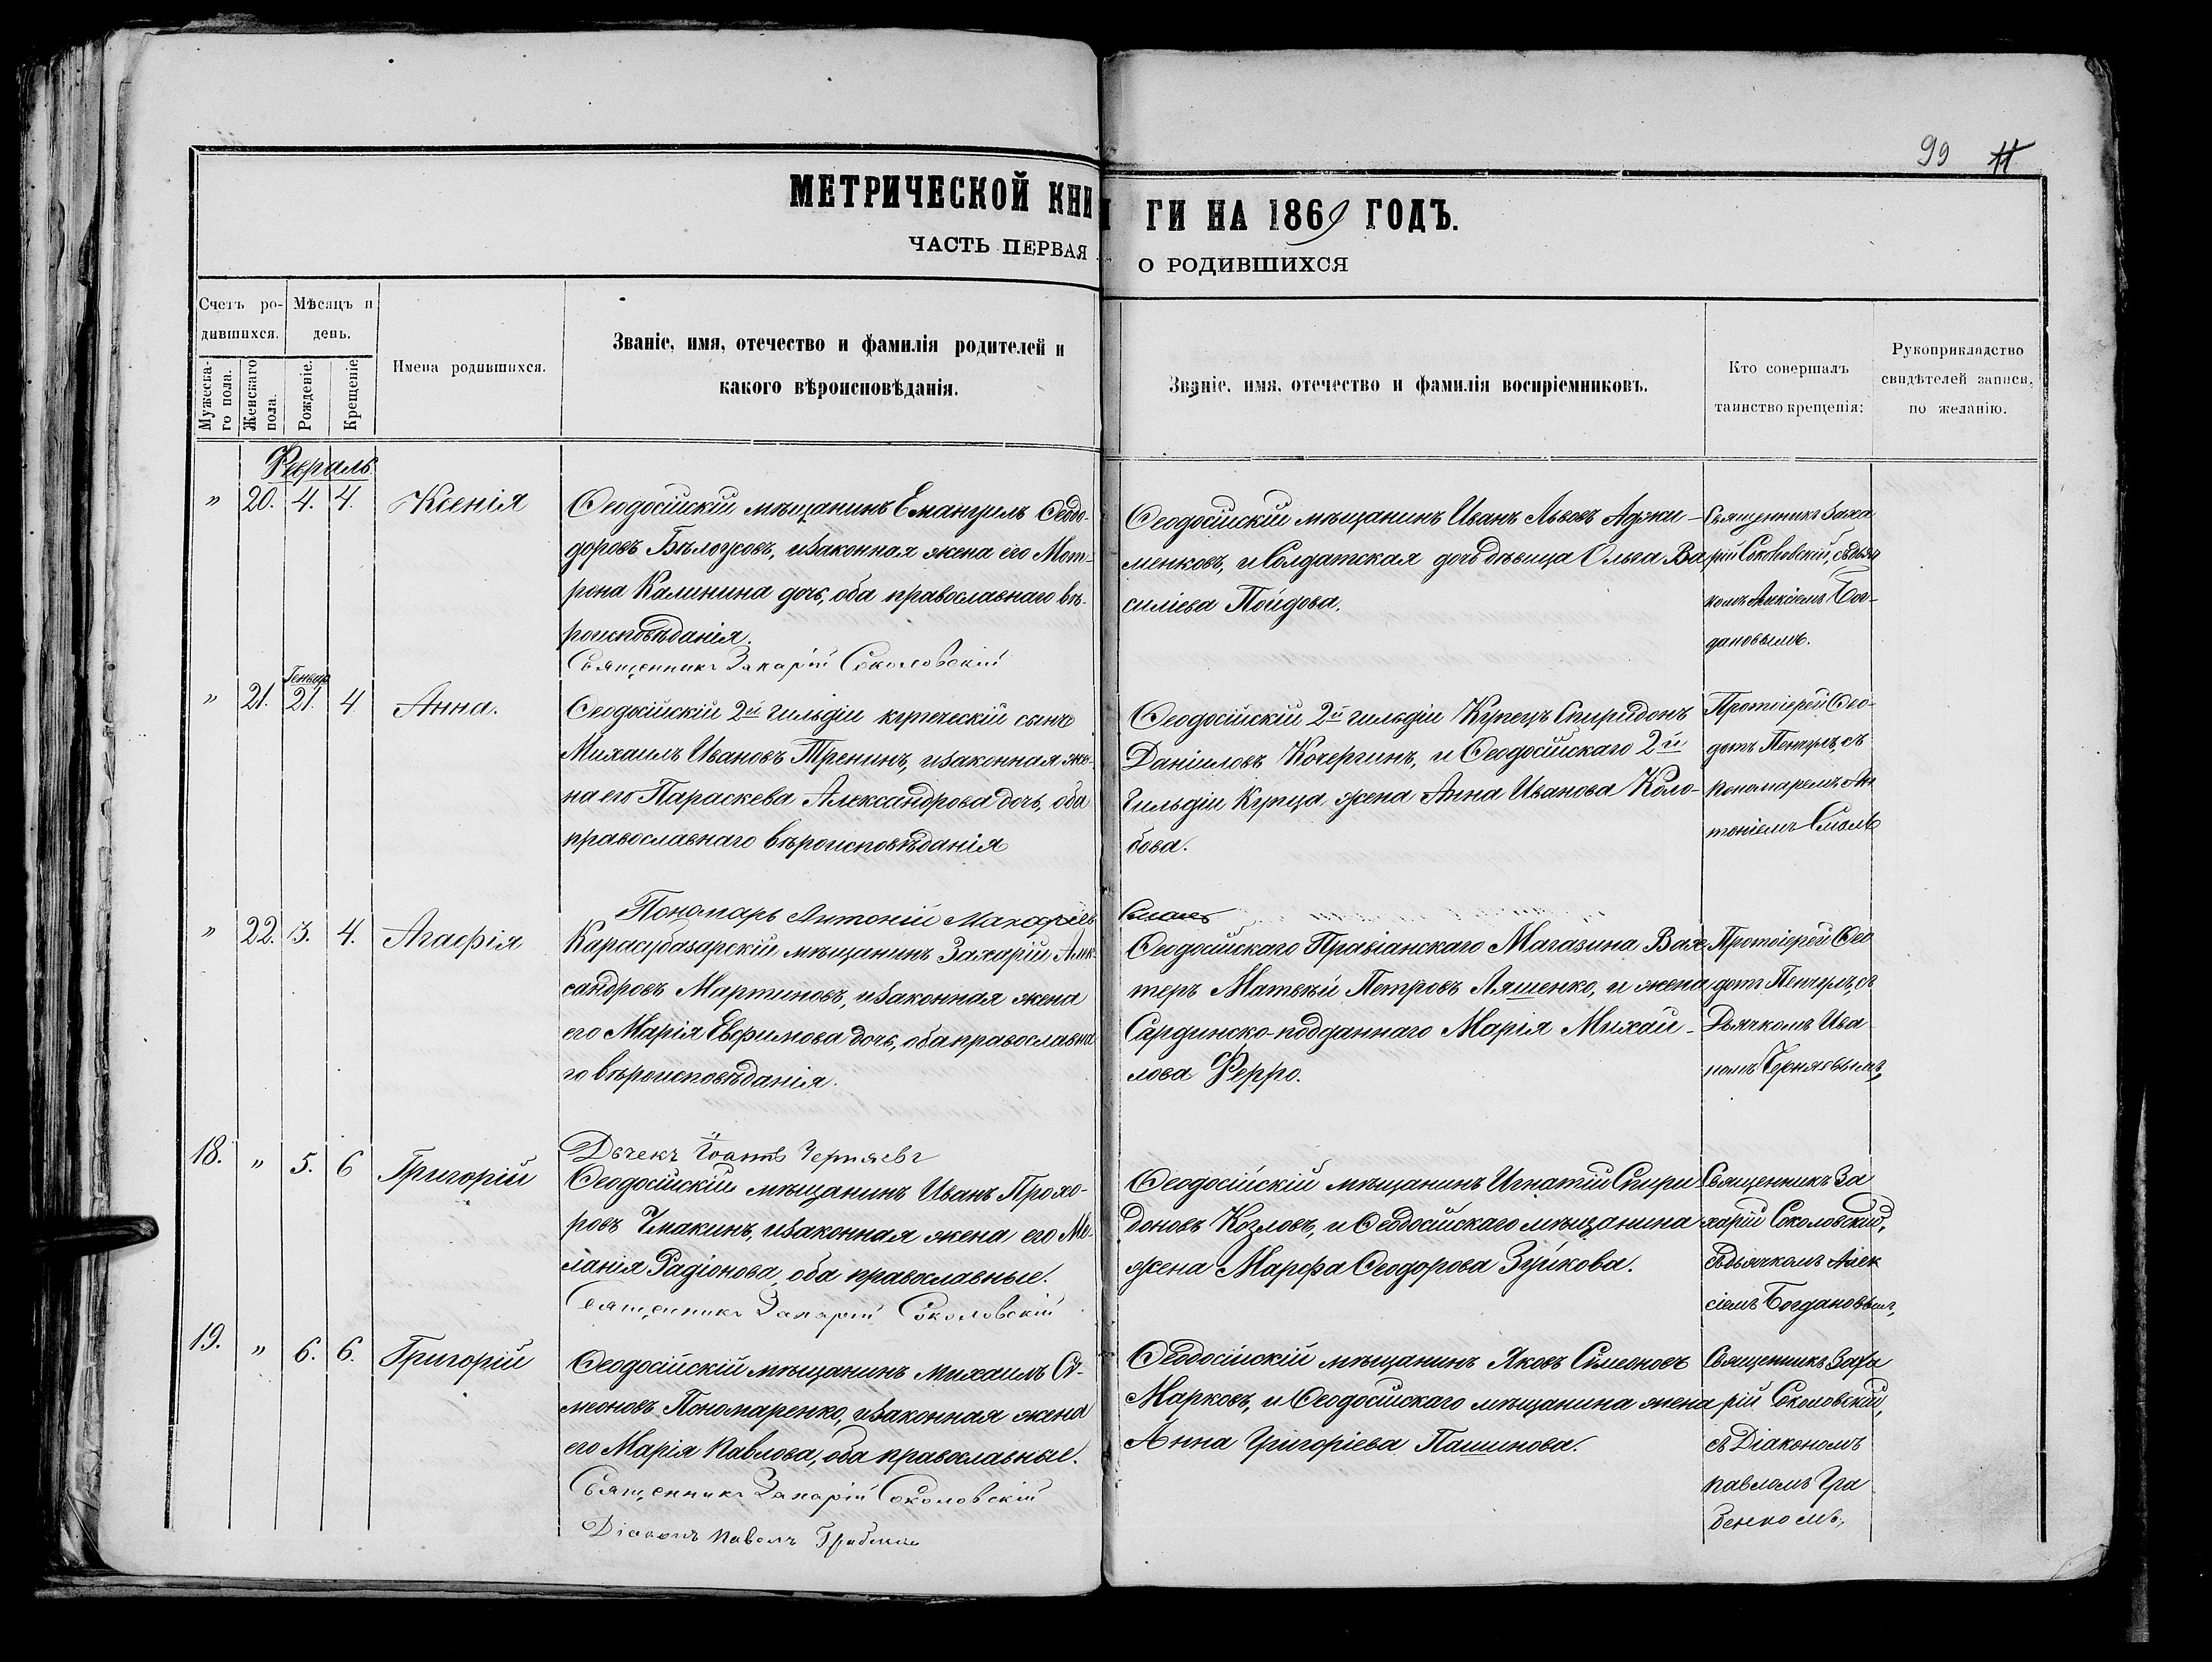 99 11
МЕТРИЧЕСКОЙ КНИ ГИ НА 1869 ГОДЪ.
ЧАСТЬ ПЕРВАЯ О РОДИВШИХСЯ
Счетъ ро-
дившихся.
Мужеска-
го пола.
Женскаго
пола.
Мѣсяцъ и
день.
Рожденіе.
Крещеніе.
Имена родившихся.
Званіе, имя, отечество и фамилія родителей и
какого вѣроисповѣданія.
Званіе, имя, отечество и фамилія воспріемниковъ.
Кто совершалъ
таинство крещенія:
Рукоприкладство
свидѣтелей записи,
по желанію.
Февраль
" 20. 4. 4. Ксенія
Ѳеодосійскій мѣщанинъ Емануилъ Ѳеодо-
доровъ Бѣлогуровъ, и законная жена его Мот-
рона Калинина дочь, оба православнаго вѣ-
роисповѣданія.
Священникъ Захарій Соколовскій
Ѳеодосійскій мѣщанинъ Иванъ Львовъ Аджи-
менковъ, и Солдатская дочь дѣвица Ольга Ва
силіева Пойдова.
Священникъ Заха
рій Соколовскій, съ дьяч
комъ Алексіемъ Бог-
дановымъ.
" 21. Генвар. 21. 4 Анна.
Ѳеодосійскій 2й гильдіи купеческій сынъ
Михаилъ Ивановъ Тренинъ, и законная же-
на его Параскева Александрова дочь, оба
православнаго вѣроисповѣданія
Пономарь Антоній Макарьевъ Смаль
Ѳеодосійскій 2й гильдіи Купецъ Спиридонъ
Даніиловъ Кочергинъ, и Ѳеодосійскаго 2й
гильдіи Купца жена Анна Иванова Коло-
бова.
Протоіерей Ѳео-
дотъ съ
пономаремъ Ан
тоніемъ Смаль
" 22. 13. 4. Агафія
Карасубазарскій мѣщанинъ Захарій Алек-
сандровъ Мартиновъ, и законная жена
его Марія Евфимова дочь, оба православна
го вѣроисповѣданія.
Дьчекъ Іоаннъ Черняевъ
Ѳеодосійскаго Правіанскаго Магазина Вах
теръ Матвѣй Петровъ Ляшенко, и жена
Сардинско-подданнаго Марія Михай-
лова Ферро.
Протоіерей Ѳео
дотъ съ
Дьячкомъ Ива
номъ Черняевымъ,
18. " 5. 6 Григорій
Ѳеодосійскій мѣщанинъ Иванъ Прохо-
ровъ Чмакинъ, и законная жена его Ме-
ланія Радіонова, оба православные.
Священникъ Захарій Соколовскій
Ѳеодосійскій мѣщанинъ Игнатій Спири
доновъ Козловъ, и Ѳеодосійскаго мѣщанина
жена Марфа Ѳеодорова Зуйкова.
Священникъ За
харій Соколовскій,
съ дьячкомъ Алек
сіемъ Богдановым,
19. " 6. 6. Григорій
Ѳеодосійскій мѣщанинъ Михаилъ Си-
меоновъ Пономаренко, и законная жена
его Марія Павлова, оба православные.
Священникъ Захарій Соколовскій
Діаконъ Павелъ Грабенко
Ѳеодосійскій мѣщанинъ Яковъ Симеоновъ
Марковъ, и Ѳеодосійскаго мѣщанина жена
Анна Григоріева Пашинова.
Священникъ Заха
рій Соколовскій,
съ Діакономъ
Павломъ Гра
бенкомъ,